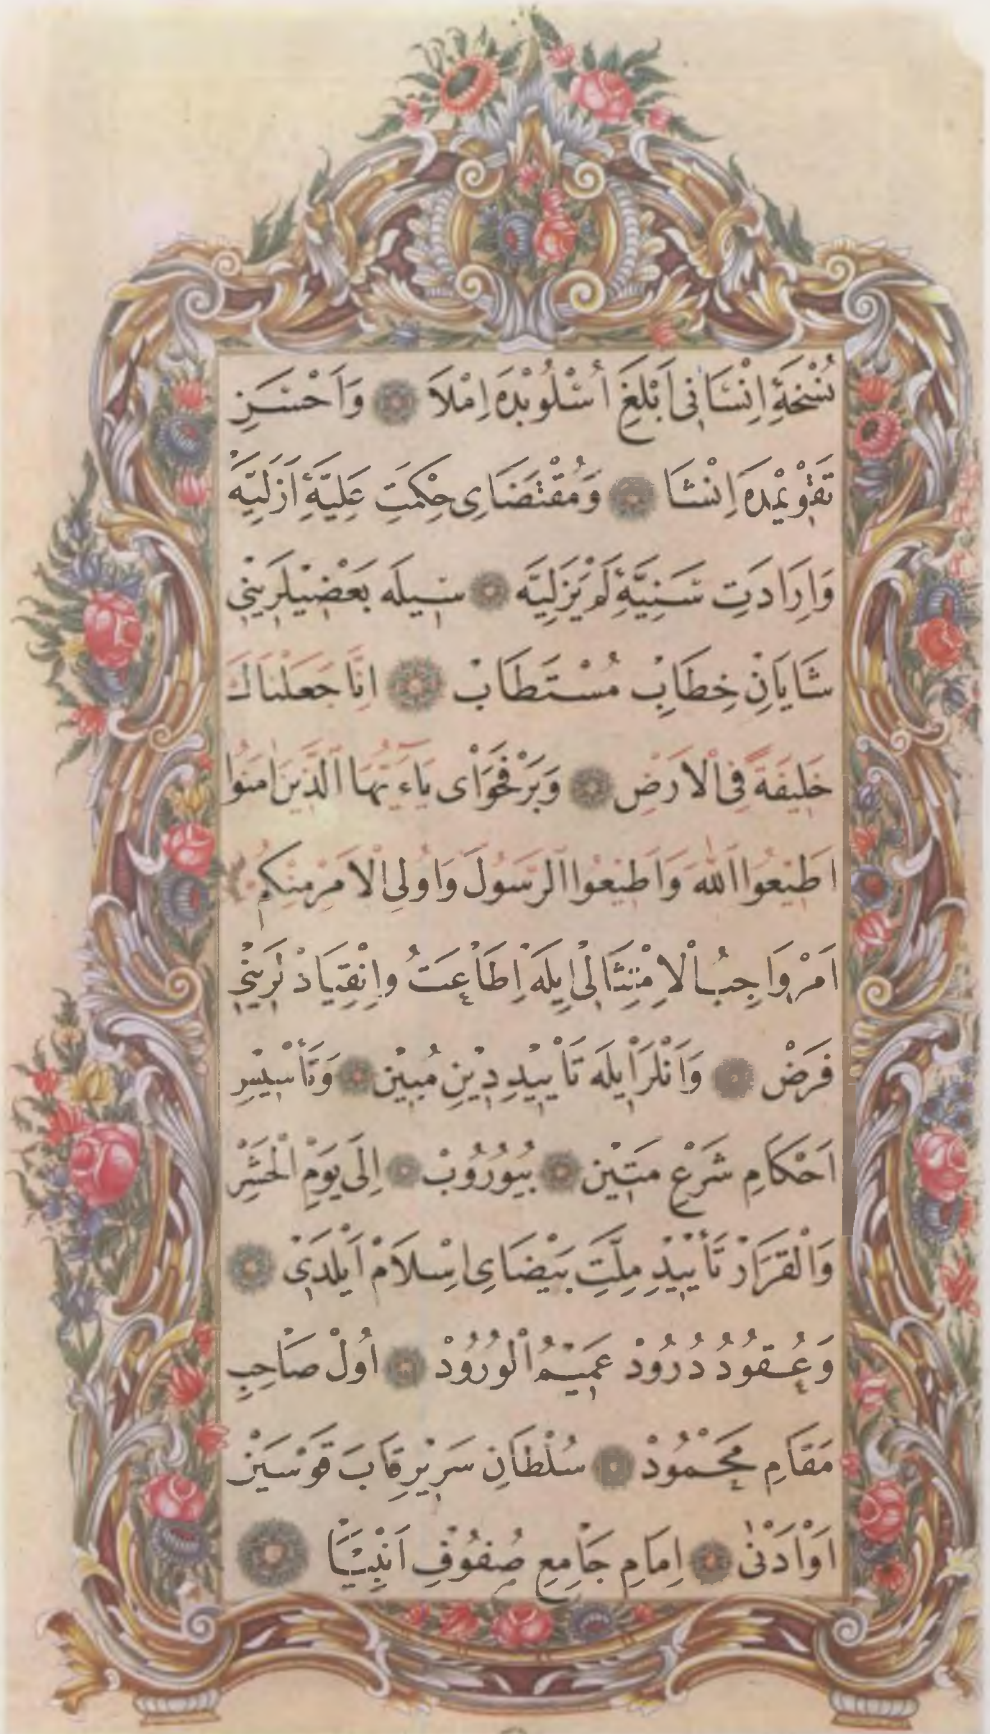 نُسْخَهٔٔ اِنْسَانِی اَبْلَغِ اُسْلُوبْدَه اِمْلَا وَاَحْسَنِ
تَقْوٖیمْدَه اِنْشَا وَمُقْتَضَایِ حِكْمَتِ عَلِیَّهٔٔ اَزَلِیَّه
وَاِرَادَتِ سَنِیَّهٔٔ لَمْ یَزَلِیَّه سیله بَعْضٖیلَرٖینٖی
شَایَانِ خِطَابِ مُسْتَطَابْ اِنَّا جَعَلْنَاكَ
خَلٖیفَةً فِی الْاَرْضِ وَبَرْ فَحْوَاىِ یَاءَیُّهَا الَّذٖینَ اٰمَنُوا
اَطٖیعُوا اللّٰهَ وَاَطٖیعُوا الرَّسُولَ وَاُولِی الْاَمْرِ مِنْكُمْ
اَمْرِ وَاجِبُ الْاِمْتِثَالِی اِیلَه اِطَاعَتْ وَاِنْقِیَادْلَرٖینٖی
فَرْضْ وَاَنْلَرْ اِیلَه تَاْیٖیدِ دٖینِ مُبٖینْ وَتَاْسٖیسِ
اَحْكَامِ شَرْعِ مَتٖینْ بُیُورُوبْ اِلَی یَوْمِ الْحَشْرِ
وَالْقَرَارْ تَاْیٖیدِ مِلَّتِ بَیْضَایِ اِسْلَامْ اَیْلَدٖی
وَعُقُودُ دُرُودْ عَمٖیمُ الْوُرُودْ اُولْ صَاحِبِ
مَقَامِ مَحْمُودْ سُلْطَانِ سَرٖیرِ قَابَ قَوْسَیْنِ
اَوْ اَدْنٰی اِمَامِ جَامِعِ صُفُوفِ اَنْبِیَا